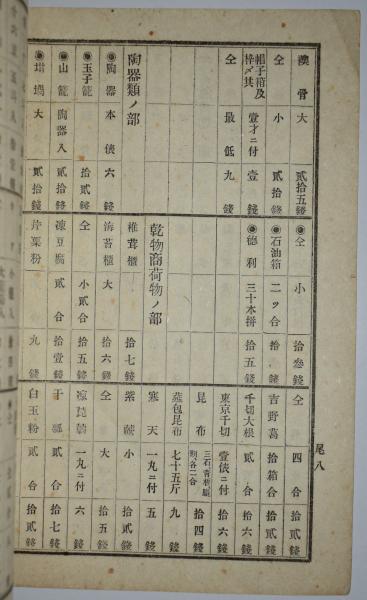 獸骨 大 貳拾五錢
仝 小 貳拾錢
帽子箱及枠〆共 壹才ニ付 壹錢
仝 最低 九錢
陶器類ノ部
陶器 本俵 六錢
玉子籠 拾貳錢
山籠 陶器入 貳拾錢
坩堝 大 貳拾錢
仝 小 拾參錢
石油箱 二ツ合 拾錢
德利 三十本拼 拾五錢
乾物商荷物ノ部
椎茸櫃 拾七錢
海苔櫃 大 拾六錢
仝 小貳合 拾五錢
凍豆腐 貳合 拾壹錢
片栗粉 九錢
仝 四合 拾貳錢
吉野葛 拾箱合 拾貳錢
千切大根 貳合 拾六錢
東京千切 壹俵ニ付 拾六錢
昆布 拾四錢
蓙包昆布 七十五斤 九錢
寒天 一丸ニ付 五錢
紫𦰩 小 拾貳錢
仝 大 拾五錢
凍蒟蒻 一丸ニ付 六錢
干瓢 貳合 拾七錢
白玉粉 貳合 拾貳錢
尾八